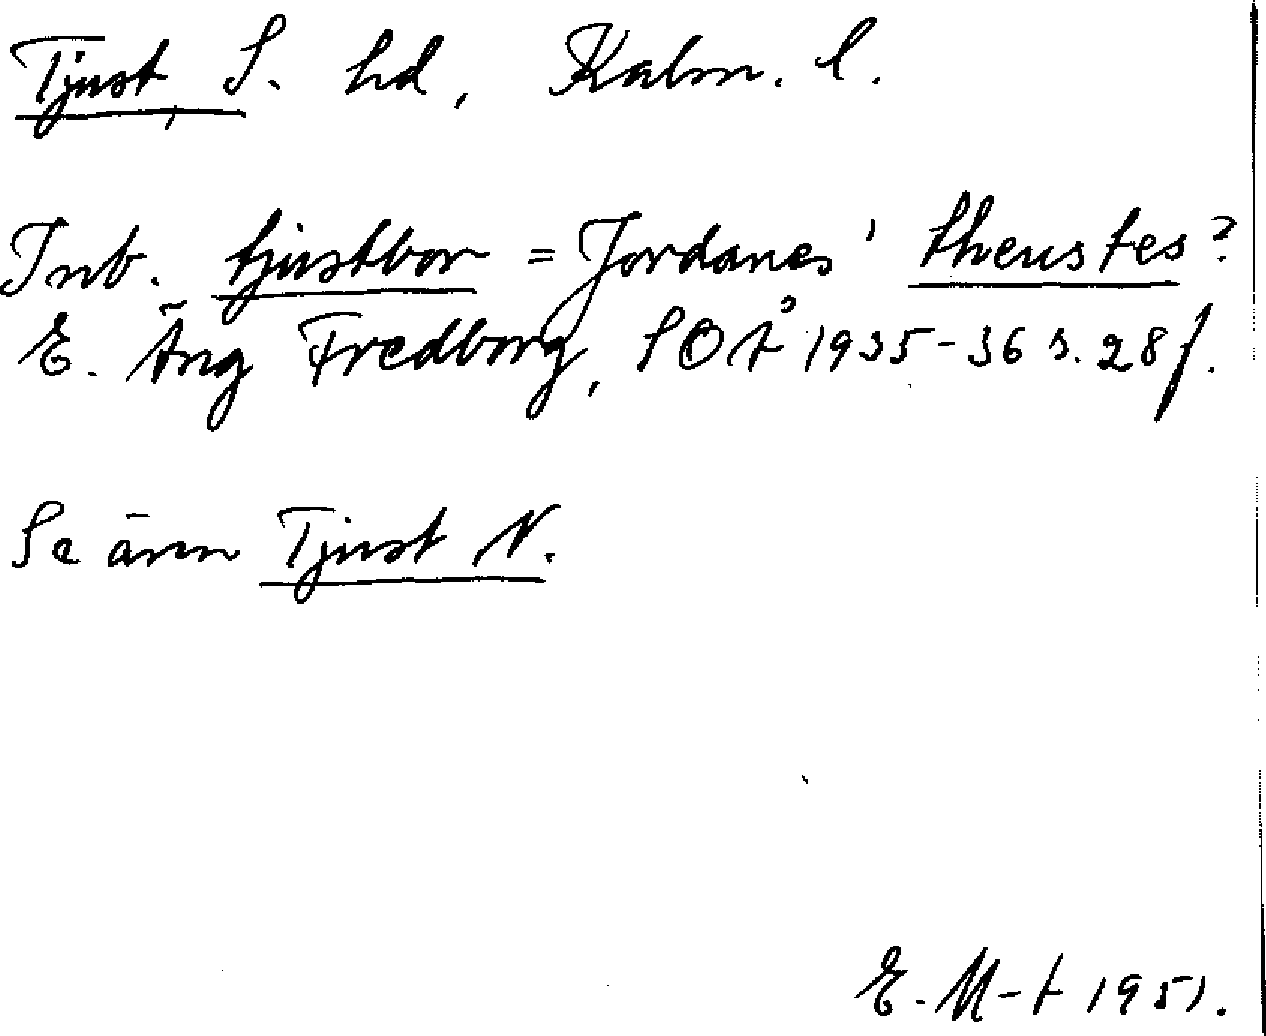 Tjust, S. hd, Kalm. l.
Inb. tjustbor = Jordanes' theustes?
E. Äng Fredborg, SOÅ 1935-36 s. 28 f.
Se även Tjust N.
E. M-t 1951.